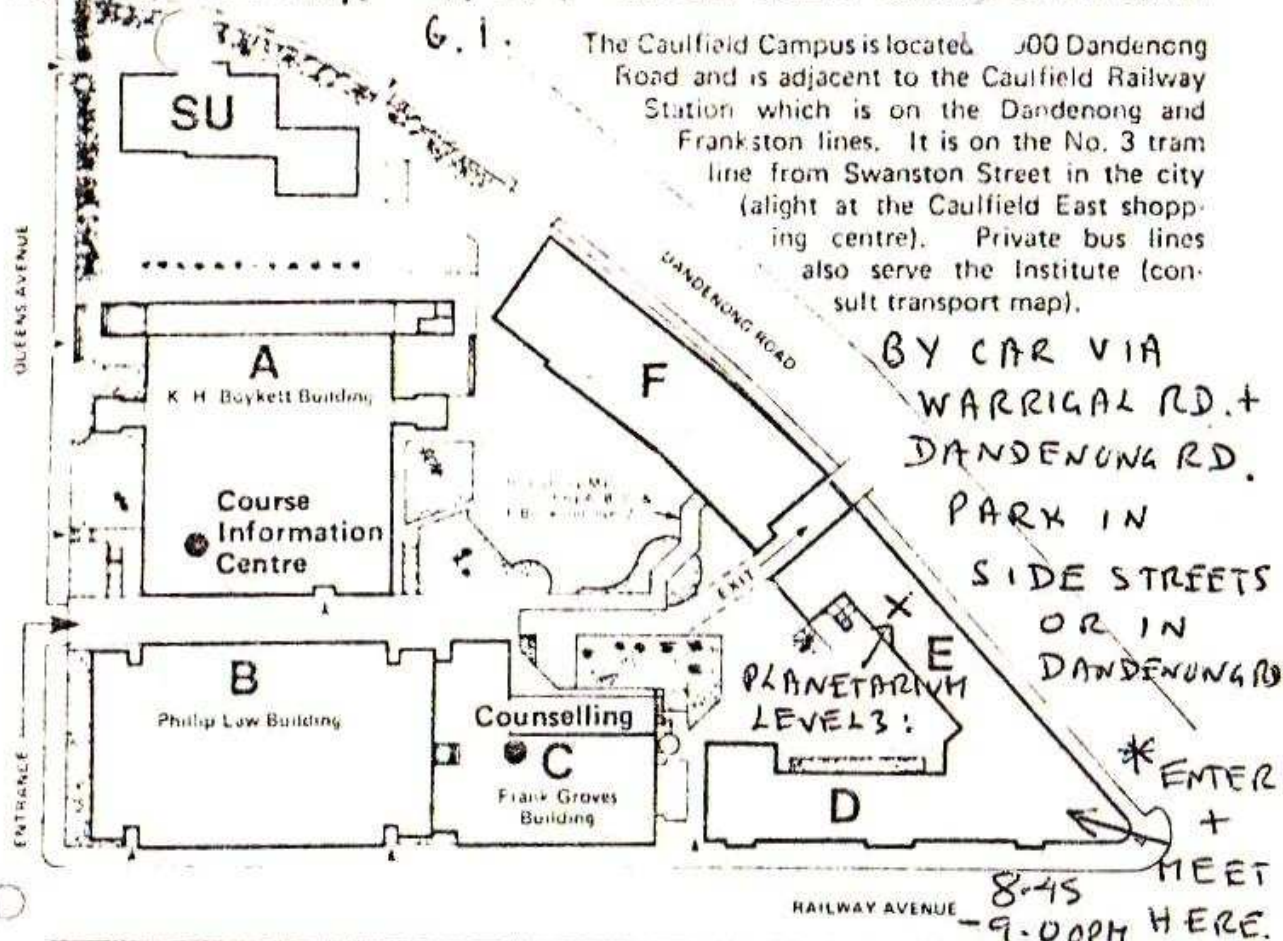 G.I.
The Caulfield Campus is located 900 Dandenong
Road and is adjacent to the Caulfield Railway
Station which is on the Dandenong and
Frankston lines. It is on the No. 3 tram
line from Swanston Street in the city
(alight at the Caulfield East shopp-
ing centre). Private bus lines
also serve the Institute (con-
sult transport map).
SU
QUEENS AVENUE
DANDENONG ROAD
BY CAR VIA
WARRIGAL RD. +
DANDENONG RD.
PARK IN
SIDE STREETS
OR IN
DANDENONG RD
A
K H Boykett Building
F
Course
Information
Centre
EXIT
X
E
PLANETARIUM
LEVEL 3:
B
Phillip Law Building
Counselling
C
Frank Groves
Building
D
ENTRANCE
* ENTER
+
MEET
HERE.
8-45
-9.00PM
RAILWAY AVENUE